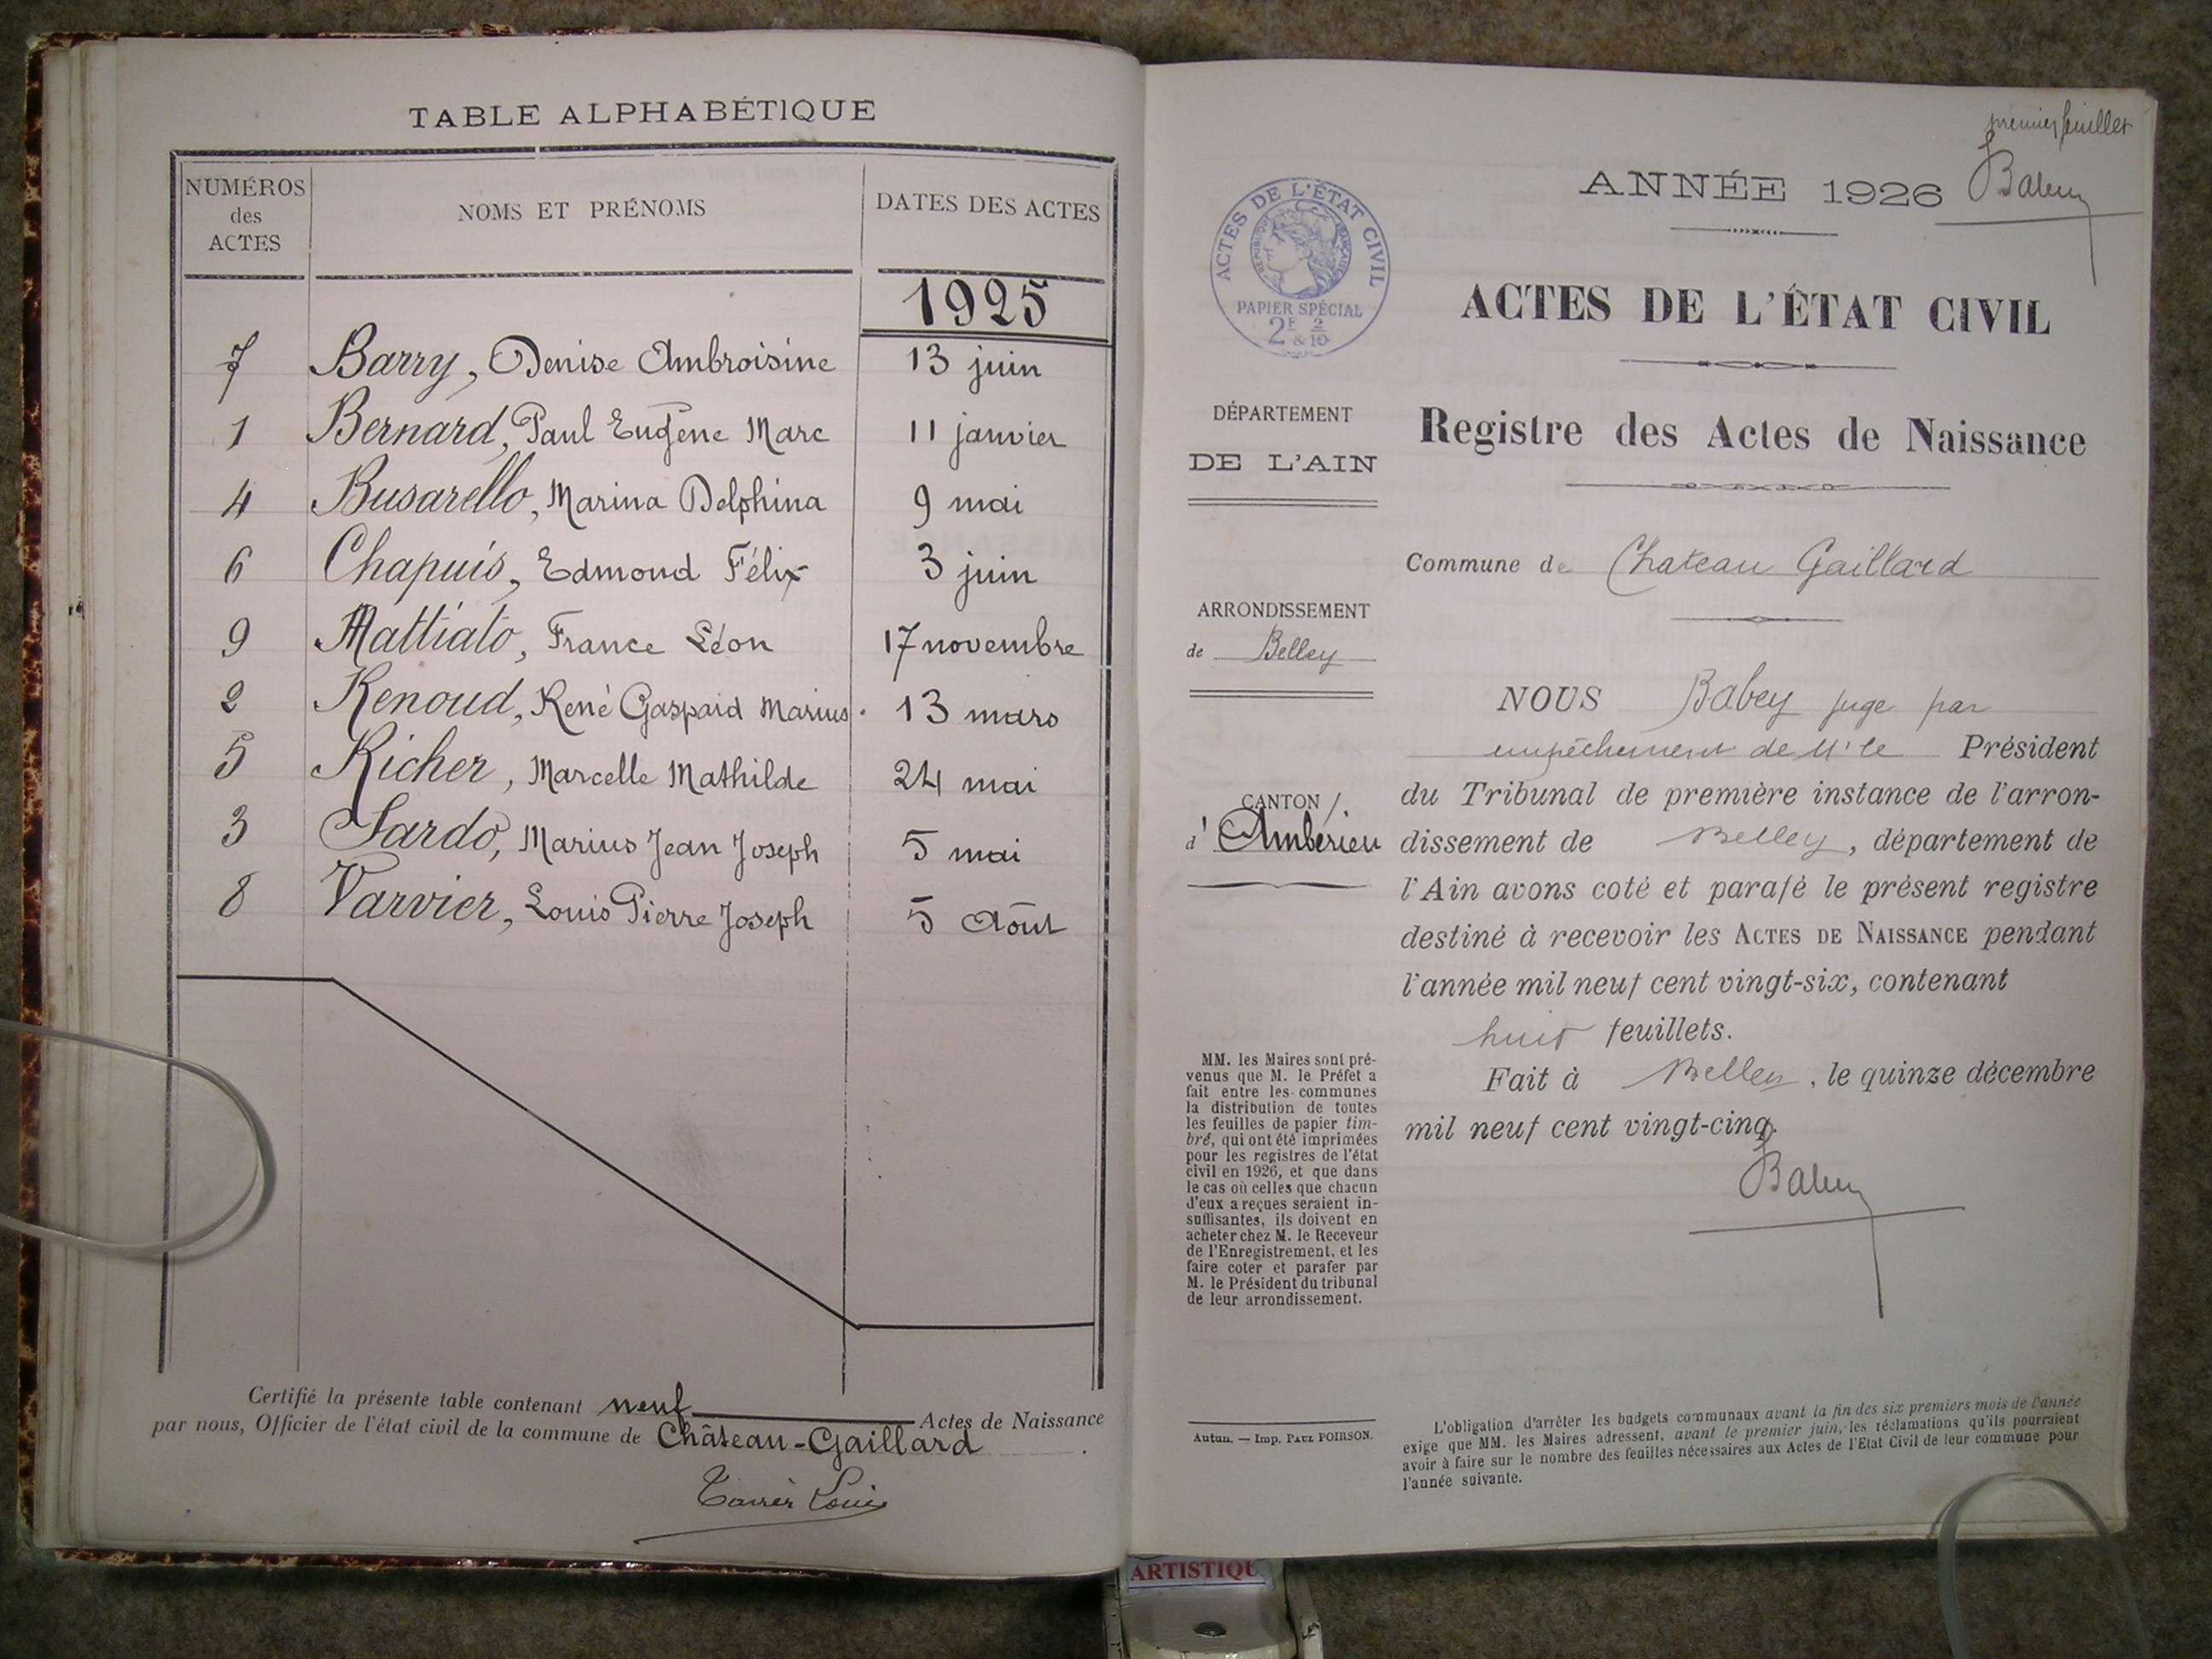 TABLE ALPHABÉTIQUE
NUMÉROS
des
ACTES
NOMS ET PRÉNOMS
DATES DES ACTES
1925
7 Barry, Denise Ambroisine 13 juin
1 Bernard, Paul Eugène Marc 11 janvier
4 Busarello, Marina Delphina 9 mai
6 Chapuis, Edmond Félix 3 juin
9 Mattiato, France Léon 17 novembre
2 Renoud, René Gaspard Marius. 13 mars
5 Richer, Marcelle Mathilde 24 mai
3 Sardo, Marius Jean Joseph 5 mai
8 Varvier, Louis Pierre Joseph 5 Août
Certifié la présente table contenant neuf Actes de Naissance
par nous, Officier de l'état civil de la commune de Château-Gaillard
Louis
premier feuillet
Babey
ANNÉE 1926
ACTES DE L'ÉTAT CIVIL
RÉPUBLIQUE FRANÇAISE
PAPIER SPÉCIAL
2F & 2/10
ACTES DE L'ÉTAT CIVIL
Registre des Actes de Naissance
DÉPARTEMENT
DE L'AIN
Commune de Chateau Gaillard
ARRONDISSEMENT
de Belley
CANTON
d'Ambérieu
NOUS Babey juge par
empêchement de Mr le Président
du Tribunal de première instance de l'arron-
dissement de Belley, département de
l'Ain avons coté et parafé le présent registre
destiné à recevoir les ACTES DE NAISSANCE pendant
l'année mil neuf cent vingt-six, contenant
huit feuillets.
Fait à Belley, le quinze décembre
mil neuf cent vingt-cinq.
Babey
MM. les Maires sont pré-
venus que M. le Préfet a
fait entre les communes
la distribution de toutes
les feuilles de papier tim-
bré, qui ont été imprimées
pour les registres de l'état
civil en 1926, et que dans
le cas où celles que chacun
d'eux a reçues seraient in-
suffisantes, ils doivent en
acheter chez M. le Receveur
de l'Enregistrement, et les
faire coter et parafer par
M. le Président du tribunal
de leur arrondissement.
Autun. — Imp. PAUL POIRSON.
L'obligation d'arrêter les budgets communaux avant la fin des six premiers mois de l'année
exige que MM. les Maires adressent, avant le premier juin, les réclamations qu'ils pourraient
avoir à faire sur le nombre des feuilles nécessaires aux Actes de l'Etat Civil de leur commune pour
l'année suivante.
ARTISTIQU